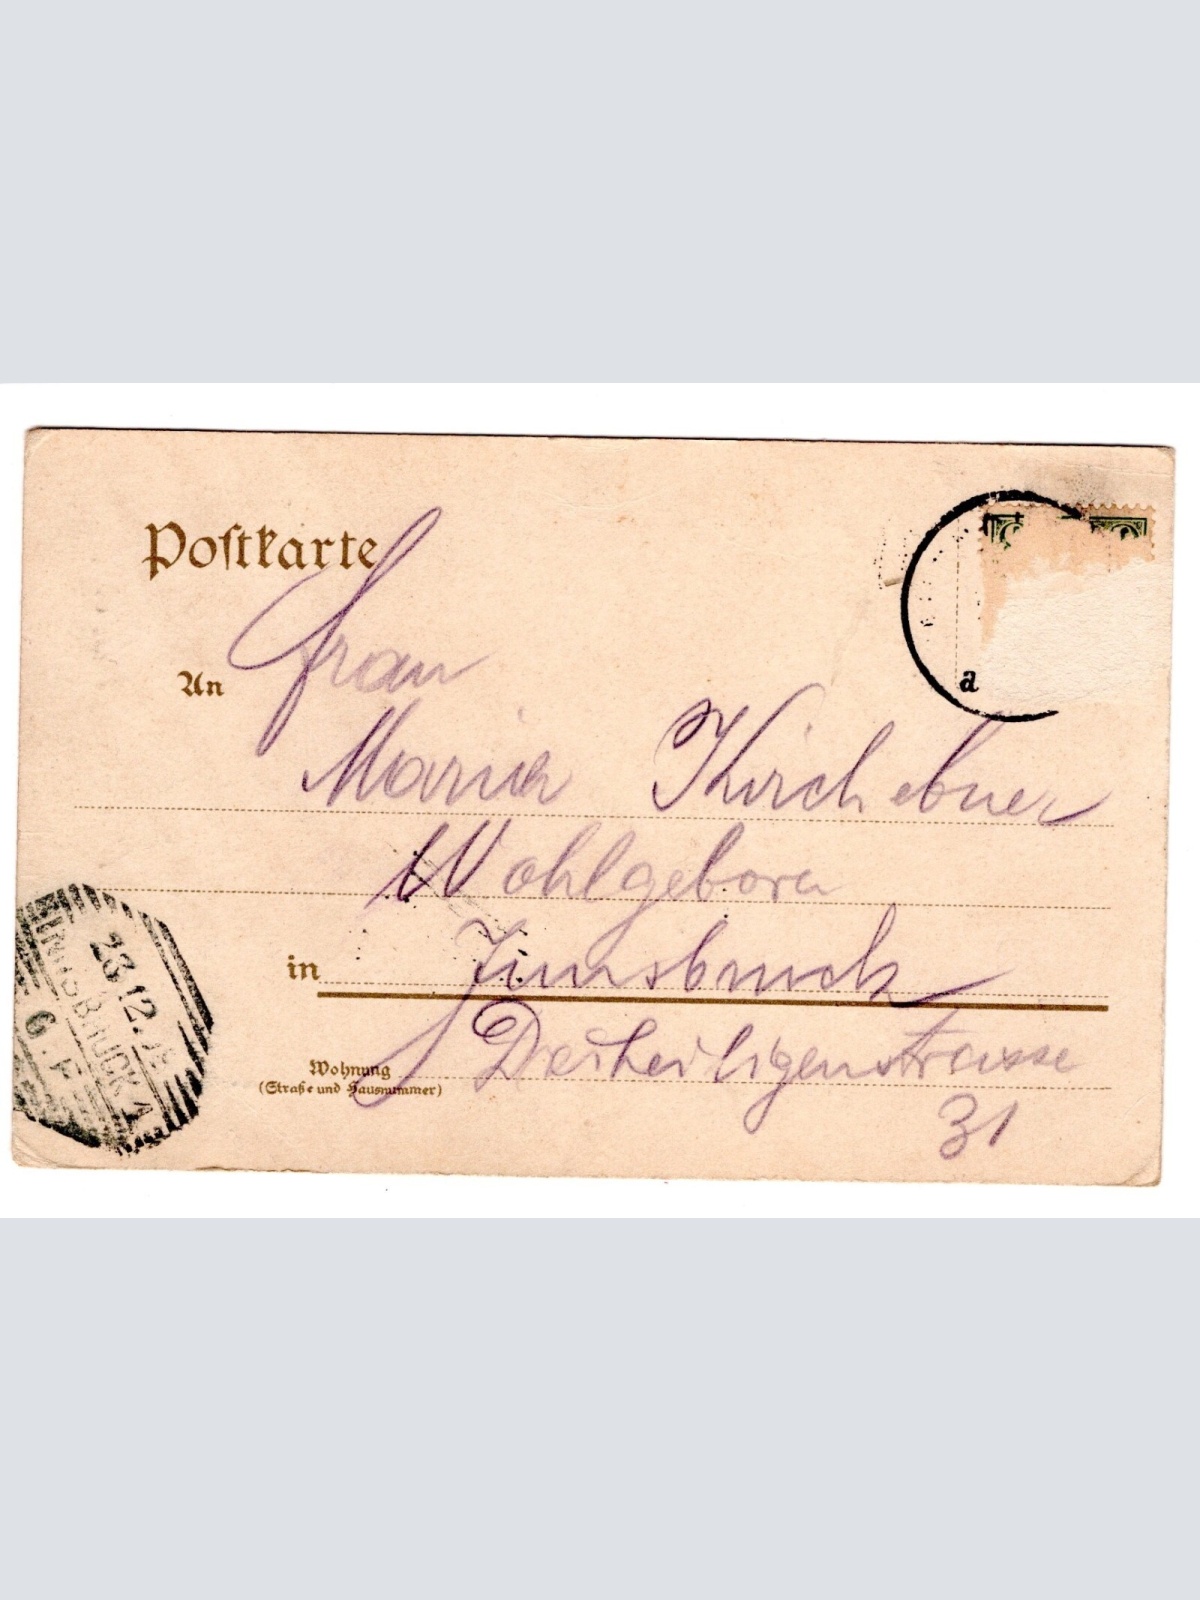 Postkarte
An Frau
Maria Kirchebner
Wohlgeboren
in Innsbruck
Wohnung
(Straße und Hausnummer)
Dreiheiligenstrasse
31
a
INNSBRUCK 1
23.12.
6.F